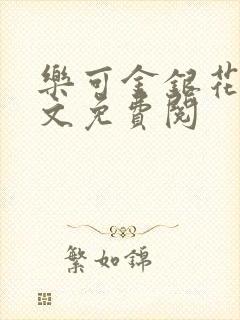 樂可金銀花
文免費閱
繁如錦